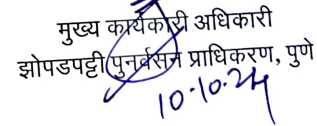 मुख्य कार्यकारी अधिकारी
झोपडपट्टी पुनर्वसन प्राधिकरण, पुणे
10.10.24